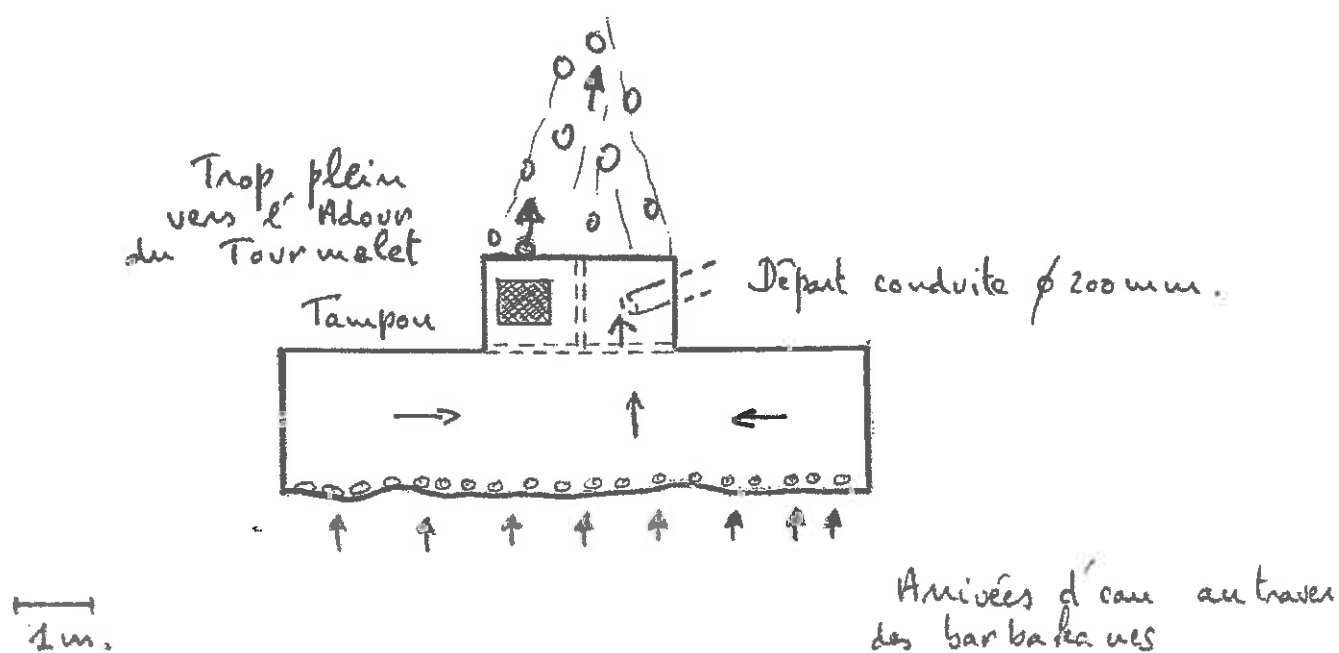 Trop plein
vers l'Adour
du Tourmalet
Tampon
Départ conduite ϕ 200 mm.
1 m.
Arrivées d'eau au traver
des barbakanes